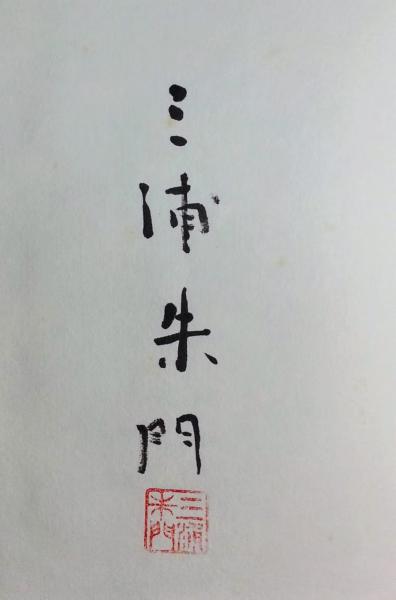 三浦朱門
三浦朱門